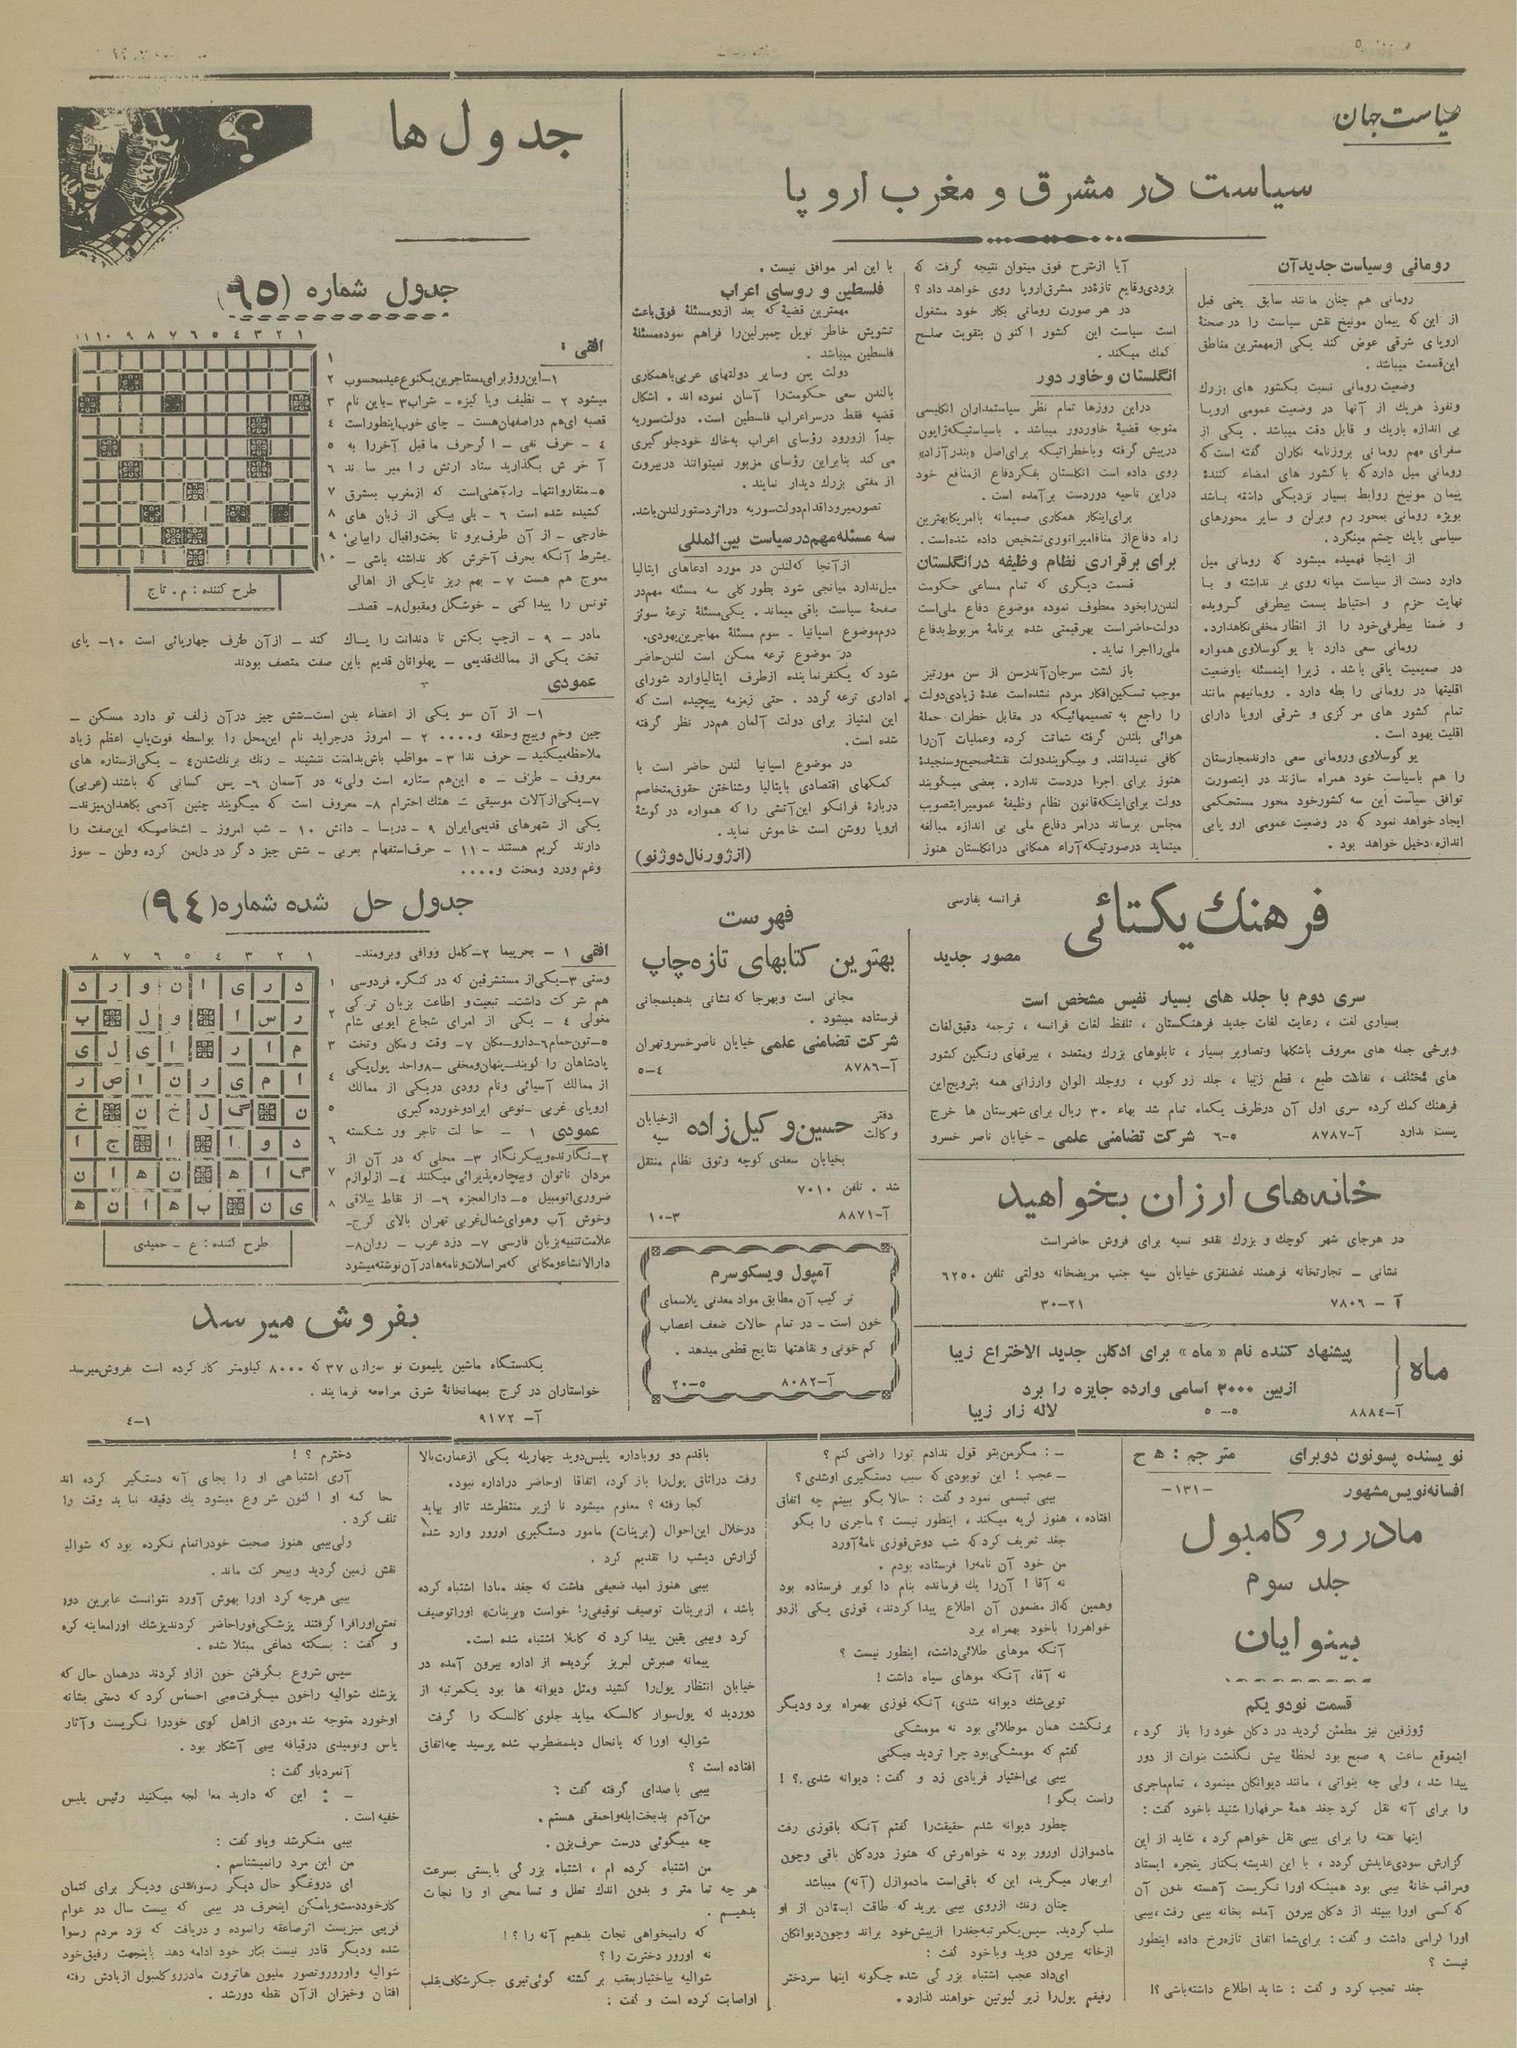 سیاست جهان
سیاست در مشرق و مغرب اروپا
رومانی و سیاست جدید آن
رومانی هم چنان مانند سابق یعنی قبل
از این که پیمان مونیخ نقش سیاست را در صحنهٔ
اروپای شرقی عوض کند یکی از مهمترین مناطق
این قسمت میباشد.
وضعیت رومانی نسبت بکشور های بزرک
ونفوذ هریك از آنها در وضعیت عمومی اروپا
بی اندازه باریك و قابل دقت میباشد. یکی از
سفرای مهم رومانی بروزنامه نگاران گفته است که
رومانی میل دارد که با کشور های امضاء کنندهٔ
پیمان مونیخ روابط بسیار نزدیکی داشته باشد
بویژه رومانی بمحور رم وبرلن و سایر محورهای
سیاسی بایك چشم مینگرد.
از اینجا فهمیده میشود که رومانی میل
دارد دست از سیاست میانه روی بر نداشته و با
نهایت حزم و احتیاط بسمت بیطرفی گرویده
و ضمنا بیطرفی خود را از انظار مخفی نگاهدارد.
رومانی سعی دارد با یوگوسلاوی همواره
در صمیمیت باقی باشد. زیرا اینمسئله باوضعیت
اقلیتها در رومانی رابطه دارد. رومانیهم مانند
تمام کشور های مرکزی و شرقی اروپا دارای
اقلیت یهود است.
یوگوسلاوی ورومانی سعی دارند مجارستان
را هم باسیاست خود همراه سازند در اینصورت
توافق سیاست این سه کشور خود محور مستحکمی
ایجاد خواهد نمود که در وضعیت عمومی اروپا بی
اندازه دخیل خواهد بود.
آیا از شرح فوق میتوان نتیجه گرفت که
بزودی وقایع تازه در مشرق اروپا روی خواهد داد؟
در هر صورت رومانی بکار خود مشغول
است سیاست این کشور اکنون بتقویت صلح
کمك میکند.
انگلستان و خاور دور
دراین روزها تمام نظر سیاستمداران انگلیسی
متوجه قضیهٔ خاوردور میباشد. باسیاستیکه ژاپون
درپیش گرفته وباخطراتیکه برای اصل «بندر آزاد»
روی داده است انگلستان بفکر دفاع از منافع خود
دراین ناحیه دوردست بر آمده است.
برای اینکار همکاری صمیمانه با امریکا بهترین
راه دفاع از منافع امپراتوری تشخیص داده شده است.
برای برقراری نظام وظیفه در انگلستان
قسمت دیگری که تمام مساعی حکومت
لندن را بخود معطوف نموده موضوع دفاع ملی است
دولت حاضر است بهر قیمتی شده برنامهٔ مربوط بدفاع
ملی را اجرا نماید.
باز گشت سرجان آندرسن از سن مورتیز
موجب تسکین افکار مردم نشده است عدهٔ زیادی دولت
را راجع به تصمیمهائیکه در مقابل خطرات حملهٔ
هوائی بلندن گرفته شماتت کرده وعملیات آن را
کافی نمیدانند. و میگویند دولت نقشهٔ صحیح و سنجیدهٔ
هنوز برای اجرا دردست ندارد. بعضی میگویند
دولت برای اینکه قانون نظام وظیفهٔ عمومی را بتصویب
مجلس برساند در امر دفاع ملی بی اندازه مبالغه
مینماید درصورتیکه آراء همگانی در انگلستان هنوز
با این امر موافق نیست.
فلسطین و روسای اعراب
مهمترین قضیهٔ که بعد از دو مسئلهٔ فوق باعث
تشویش خاطر نویل چمبرلین را فراهم نموده مسئلهٔ
فلسطین میباشد.
دولت یمن وسایر دولتهای عربی باهمکاری
بالندن سعی حکومت را آسان نموده اند. اشکال
قضیه فقط در سر اعراب فلسطین است. دولت سوریه
جداً ازورود رؤسای اعراب به خاك خود جلوگیری
می کند بنابراین رؤسای مزبور نمیتوانند در بیروت
از مفتی بزرك دیدار نمایند.
تصور میرود اقدام دولت سوریه در اثر دستور لندن باشد.
سه مسئله مهم در سیاست بین المللی
از آنجا که لندن در مورد ادعاهای ایتالیا
میل ندارد میانجی شود بطور کلی سه مسئله مهم در
صفحهٔ سیاست باقی میماند. یکی مسئلهٔ ترعهٔ سوئز
دوم موضوع اسپانیا ـ سوم مسئلهٔ مهاجرین یهودی.
در موضوع ترعه ممکن است لندن حاضر
شود که یکنفر نماینده از طرف ایتالیا وارد شورای
اداری ترعه گردد. حتی زمزمه پیچیده است که
این امتیاز برای دولت آلمان هم در نظر گرفته
شده است.
در موضوع اسپانیا لندن حاضر است با
کمکهای اقتصادی با ایتالیا وشناختن حقوق متخاصم
دربارهٔ فرانکو این آتشی را که همواره در گوشهٔ
اروپا روشن است خاموش نماید.
(از ژورنال دوژنو)
جدول ها
جدول شماره (۹۵)
۱ ۲ ۳ ٤ ٥ ٦ ۷ ۸ ۹ ۱۰ ۱۱
۱
۲
۳
٤
٥
٦
۷
۸
۹
۱۰
طرح کننده: م. تاج
افقی:
۱ـ این روز برای مستاجرین یکنوع عید محسوب
میشود ۲ ـ نظیف وپاکیزه ـ شراب ۳ ـ باین نام
قصبه ای هم در اصفهان است ـ چای خوب اینطور است
٤ ـ حرف نفی ـ اگر حرف ما قبل آخر را به
آخرش بگذارید ستاد ارتش را میرساند
٥ ـ منقار وانتها ـ راه آهنی است که از مغرب بمشرق
کشیده شده است ٦ ـ بلی بیکی از زبان های
خارجی ـ از آن طرف برو تا بخت و اقبال رابیابی
بشرط آنکه بحرف آخرش کار نداشته باشی ـ
معوج هم هست ۷ ـ بهم ریز تایکی از اهالی
تونس را پیدا کنی ـ خوشگل ومقبول ۸ ـ قصد ـ
مادر ـ ۹ ـ ازچپ بکش تا دندانت را پاك کند ـ از آن طرف چهارپائی است ۱۰ـ پای
تخت یکی از ممالك قدیمی ـ پهلوانان قدیم باین صفت متصف بودند
عمودی
۱ ـ از آن سو یکی از اعضاء بدن است ـ شش چیز در آن زلف تو دارد مسکن ـ
چین وخم وپیچ وحلقه و.... ۲ ـ امروز درجراید نام این محل را بواسطه فوت پاپ اعظم زیاد
ملاحظه میکنید ـ حرف ندا ۳ ـ مواظب باش بدامنت ننشیند ـ رنك برنك شدن ٤ ـ یکی از ستاره های
معروف ـ طرف ـ ٥ این هم ستاره است ولی نه در آسمان ٦ ـ پس کسانی که باشند (عربی)
۷ ـ یکی از آلات موسیقی ـ هتك احترام ۸ ـ معروف است که میگویند چنین آدمی بکاهدان میزند ـ
یکی از شهرهای قدیمی ایران ۹ ـ دریا ـ دانش ۱۰ ـ شب امروز ـ اشخاصیکه این صفت را
دارند کریم هستند ـ ۱۱ ـ حرف استفهام بعربی ـ شش چیز دگر در دل من کرده وطن ـ سوز
وغم ودرد ومحنت و....
جدول حل شده شماره (۹٤)
۱ ۲ ۳ ٤ ٥ ٦ ۷ ۸
۱ د ر ی ا ن و ر د
۲ ر س ا و ل پ
۳ م ا ر ا ی ل ی
٤ ا م ی ر ن ا ص ر
٥ ن گ ل خ ن خ
٦ د و ا ا ج ا
۷ گ ا ه ن ه ا ن
۸ ی ن ب ه ا ن ه
طرح کننده: ع ـ حمیدی
افقی ۱ ـ بحرپیما ۲ ـ کامل ووافی وبرومند ـ
وستی ۳ ـ یکی از مستشرقین که در کنگره فردوسی
هم شرکت داشت ـ تبعیت و اطاعت بزبان ترکی
مغولی ٤ ـ یکی از امرای شجاع ایوبی شام
٥ ـ تون حمام ٦ ـ دارو ـ مکان ۷ ـ وقت و مکان وتخت
پادشاهان را گویند ـ پنهان ومخفی ـ ۸ واحد پول یکی
از ممالك آسیائی ونام رودی در یکی از ممالك
اروپای غربی ـ نوعی ایراد وخورده گیری
عمودی ۱ ـ حالت تاجر ورشکسته
۲ ـ نگارنده وپیکر نگار ۳ ـ محلی که در آن از
مردان ناتوان وبیچاره پذیرائی میکنند ٤ ـ از لوازم
ضروری اتومبیل ٥ ـ دارالعجزه ٦ ـ از نقاط ییلاقی
وخوش آب وهوای شمال غربی تهران بالای کرج ـ
علامت تنبیه بزبان فارسی ۷ ـ دزد عرب ـ روان ۸ ـ
دارالانشاء ومکانی که مراسلات ونامه ها در آن نوشته میشود
فرهنك یکتائی
فرانسه بفارسی
مصور جدید
سری دوم با جلد های بسیار نفیس مشخص است
بسیاری لغت، رعایت لغات جدید فرهنگستان، تلفظ لغات فرانسه، ترجمه دقیق لغات
وبرخی جمله های معروف باشکلها وتصاویر بسیار، تابلوهای بزرك ومتعدد، بیرقهای رنگین کشور
های مختلف، نفاست طبع، قطع زیبا، جلد زر کوب، روجلد الوان وارزانی همه بترویج این
فرهنك کمك کرده سری اول آن درظرف یکماه تمام شد بهاء ۳۰ ریال برای شهرستان ها خرج
پست ندارد آ-۸۷۸۷ ٥-٦ شرکت تضامنی علمی ـ خیابان ناصر خسرو
خانه های ارزان بخواهید
در هرجای شهر کوچك و بزرك نقد و نسیه برای فروش حاضر است
نشانی ـ تجارتخانه فرهمند غضنفری خیابان سپه جنب مریضخانه دولتی تلفن ٦۲٥۰
آ ـ ۷۸۰٦ ۲۱ـ۳۰
ماه
پیشنهاد کننده نام «ماه» برای ادکلن جدید الاختراع زیبا
از بین ۳۰۰۰ اسامی وارده جایزه را برد
آ-۸۸۸٤ ٥ـ٥ لاله زار زیبا
فهرست
بهترین کتابهای تازه چاپ
مجانی است وبهر جا که نشانی بدهید مجانی
فرستاده میشود.
شرکت تضامنی علمی خیابان ناصر خسرو تهران
آ-۸۷۸٦ ٤ـ٥
دفتر وکالت حسین وکیل زاده از خیابان سپه
بخیابان سعدی کوچه وثوق نظام منتقل
شد. تلفن ۷۰۱۰
آ-۸۸۷۱ ۳ـ۱۰
آمپول ویسکوسرم
ترکیب آن مطابق مواد معدنی پلاسمای
خون است ـ در تمام حالات ضعف اعصاب
کم خونی و نقاهتها نتایج قطعی میدهد.
آ-۸۰۸۲ ٥ـ۲۰
بفروش میرسد
یکدستگاه ماشین پلیموت نو سواری ۳۷ که ۸۰۰۰ کیلومتر کار کرده است بفروش میرسد
خواستاران در کرج بمهمانخانهٔ شرق مراجعه فرمایند.
آ-۹۱۷۲ ۱ـ٤
نویسنده پونسون دوترای
مترجم: ه ح
افسانه نویس مشهور
ـ ۱۳۱ ـ
مادر روکامبول
جلد سوم
بینوایان
قسمت نود و یکم
ژوزفین نیز مطمئن گردید در دکان خود را باز کرد،
اینموقع ساعت ۹ صبح بود لحظهٔ بیش نگذشت بنوات از دور
پیدا شد، ولی چه بنواتی، مانند دیوانگان مینمود، تمام ماجری
را برای آنه نقل کرد جغد همهٔ حرفها را شنید باخود گفت:
اینها همه را برای بیبی نقل خواهم کرد، شاید از این
گزارش سودی عایدش گردد، با این اندیشه بکنار پنجره ایستاد
ومراقب خانهٔ بیبی بود همینکه اورا نگریست آهسته بدون آن
که کسی اورا ببیند از دکان بیرون آمده بخانه بیبی رفت، بیبی
اورا گرامی داشت و گفت: برای شما اتفاق تازه رخ داده اینطور
نیست؟
جغد تعجب کرد و گفت: شاید اطلاع داشته باشی؟!
ـ: مگر من بتو قول ندادم تورا راضی کنم؟
ـ عجب! این تو بودی که سبب دستگیری او شدی؟
بیبی تبسمی نمود و گفت: حالا بگو ببینم چه اتفاق
افتاده، هنوز گریه میکند، اینطور نیست؟ ماجری را بگو
جغد تعریف کرد که شب دوش قوزی نامهٔ آورد
من خود آن نامه را فرستاده بودم.
نه آقا! آن را یك فرمانده بنام داکوبر فرستاده بود
وهمین که از مضمون آن اطلاع پیدا کردند، قوزی یکی از دو
خواهر را باخود بهمراه برد
آنکه موهای طلائی داشت، اینطور نیست؟
نه آقا، آنکه موهای سیاه داشت!
توبی شك دیوانه شدی، آنکه قوزی بهمراه برد ودیگر
برنگشت همان موطلائی بود نه مومشکی
گفتم که مومشکی بود چرا تردید میکنی
بیبی بی اختیار فریادی زد و گفت: دیوانه شدی.؟!
راست بگو!
چطور دیوانه شدم حقیقت را گفتم آنکه باقوزی رفت
مادموازل اورور بود نه خواهرش که هنوز دردکان باقی وچون
ابر بهار میگرید، این که باقی است مادموازل (آنه) میباشد
چنان رنك ازروی بیبی پرید که طاقت ایستادن از او
سلب گردید. سپس یکمرتبه جغد را از پیش خود براند وچون دیوانگان
از خانه بیرون دوید وباخود گفت:
ای داد عجب اشتباه بزرگی شده چگونه اینها سر دختر
رفیقم پول را زیر گیوتین خواهند گذارد.
باقدم دو روباداره پلیس دوید چهارپله یکی از عمارت بالا
رفت دراتاق پول را باز کرد، اتفاقا اوحاضر دراداره نبود.
کجا رفته؟ معلوم میشود ناگزیر منتظر شد تا او بیاید
درخلال این احوال (برینات) مامور دستگیری اورور وارد شده
گزارش دیشب را تقدیم کرد.
بیبی هنوز امید ضعیفی داشت که جغد مبادا اشتباه کرده
باشد، از برینات توصیف توقیفی را خواست «برینات» اورا توصیف
کرد وبیبی یقین پیدا کرد که کاملا اشتباه شده است.
پیمانه صبرش لبریز گردیده از اداره بیرون آمده در
خیابان انتظار پول را کشید ومثل دیوانه ها بود یکمرتبه از
دور دید که پول سوار کالسکه میاید جلوی کالسکه را گرفت
شوالیه اورا که بانحال دید مضطرب شده پرسید چه اتفاق
افتاده است؟
بیبی باصدای گرفته گفت:
من آدم بدبخت ابله واحمقی هستم.
چه میگوئی درست حرف بزن.
من اشتباه کرده ام، اشتباه بزرگی بایستی بسرعت
هر چه تمامتر و بدون اندك تعلل و تسامحی او را نجات
بدهیم.
که رامیخواهی نجات بدهیم آنه را؟!
نه اورور دخترت را؟
شوالیه بی اختیار بعقب برگشته گوئی تیری جگر شکاف بقلب
اواصابت کرده است و گفت:
دخترم؟!
آری اشتباهی او را بجای آنه دستگیر کرده اند
محاکمه او اکنون شروع میشود یك دقیقه نباید وقت را
تلف کرد.
ولی بیبی هنوز صحبت خودرا تمام نکرده بود که شوالیه
نقش زمین گردید وبیحرکت ماند.
بیبی هرچه کرد اورا بهوش آورد نتوانست عابرین دور
نعش اورا فرا گرفتند پزشکی فورا حاضر کردند پزشك اورا معاینه کرده
و گفت: بسکته دماغی مبتلا شده.
سپس شروع بگرفتن خون ازاو کردند درهمان حال که
پزشك شوالیه راخون میگرفت بیبی احساس کرد که دستی بشانه
اوخورد متوجه شد مردی ازاهل کوی خودرا نگریست وآثار
یاس ونومیدی درقیافه بیبی آشکار بود.
آنمرد باو گفت:
ـ: این که دارید معالجه میکنید رئیس پلیس
خفیه است.
بیبی منکر شد وباو گفت:
من این مرد رانمیشناسم.
ای دروغگو حال دیگر رسوا شدی ودیگر برای کتمان
کارخود دست وپا مکن اینحرف در بیبی که بیست سال در عوام
فریبی میزیست اثر صاعقه رانموده و دریافت که نزد مردم رسوا
شده ودیگر قادر نیست بکار خود ادامه دهد باینجهت رفیق خود
شوالیه واورور وتصور ملیون هاثروت مادر روکامبول از یادش رفته
افتان وخیزان از آن نقطه دور شد.